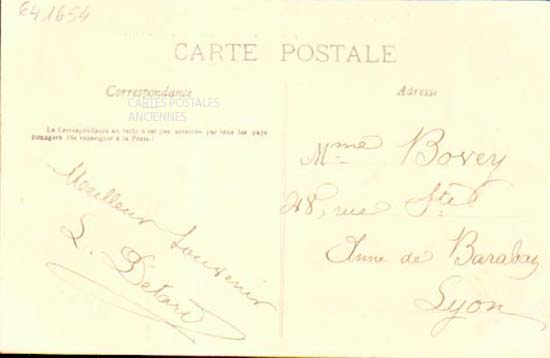 641654
CARTE POSTALE
Correspondance
CARTES POSTALES
ANCIENNES
La Correspondance au recto n'est pas acceptée par tous les pays
étrangers. (Se renseigner à la Poste.)
Meilleur Souvenir
L. Détard
Adresse
Mme Bovey
48, rue Ste
Anne de Barabay
Lyon